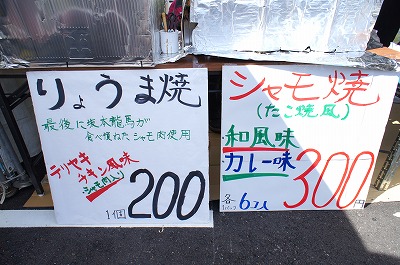 りょうま焼
最後に坂本龍馬が
食べ損ねたシャモ肉使用
テリヤキ
チキン風味
シャモ肉入り
1個 200
シャモ焼
(たこ焼風)
和風味
カレー味
各
1パック 6コ入 300円